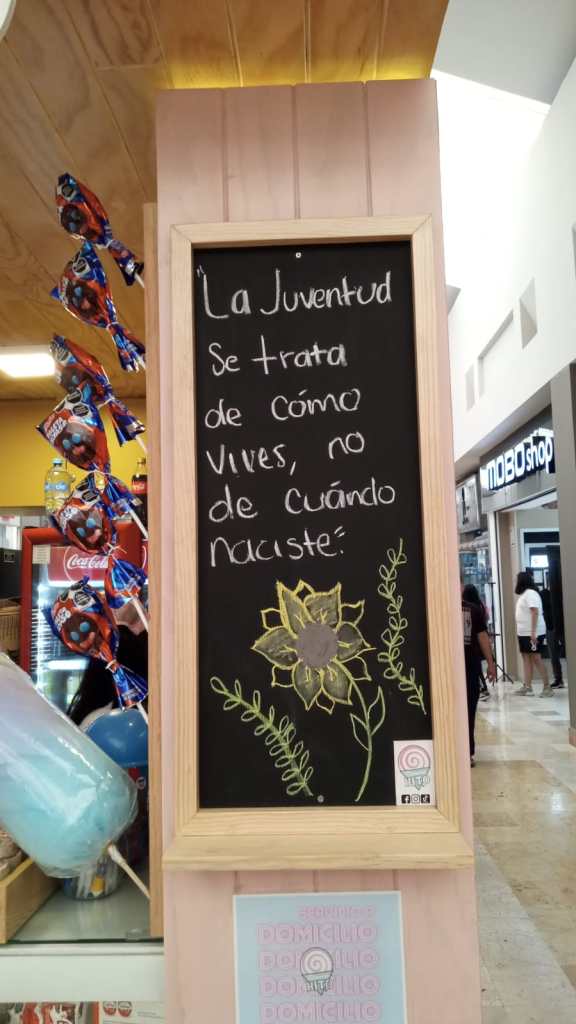 "La Juventud
Se trata
de cómo
vives, no
de cuándo
naciste."
HITO
SERVICIO A
DOMICILIO
DOMICILIO
DOMICILIO
DOMICILIO
HITO
Coca-Cola
MOBO shop